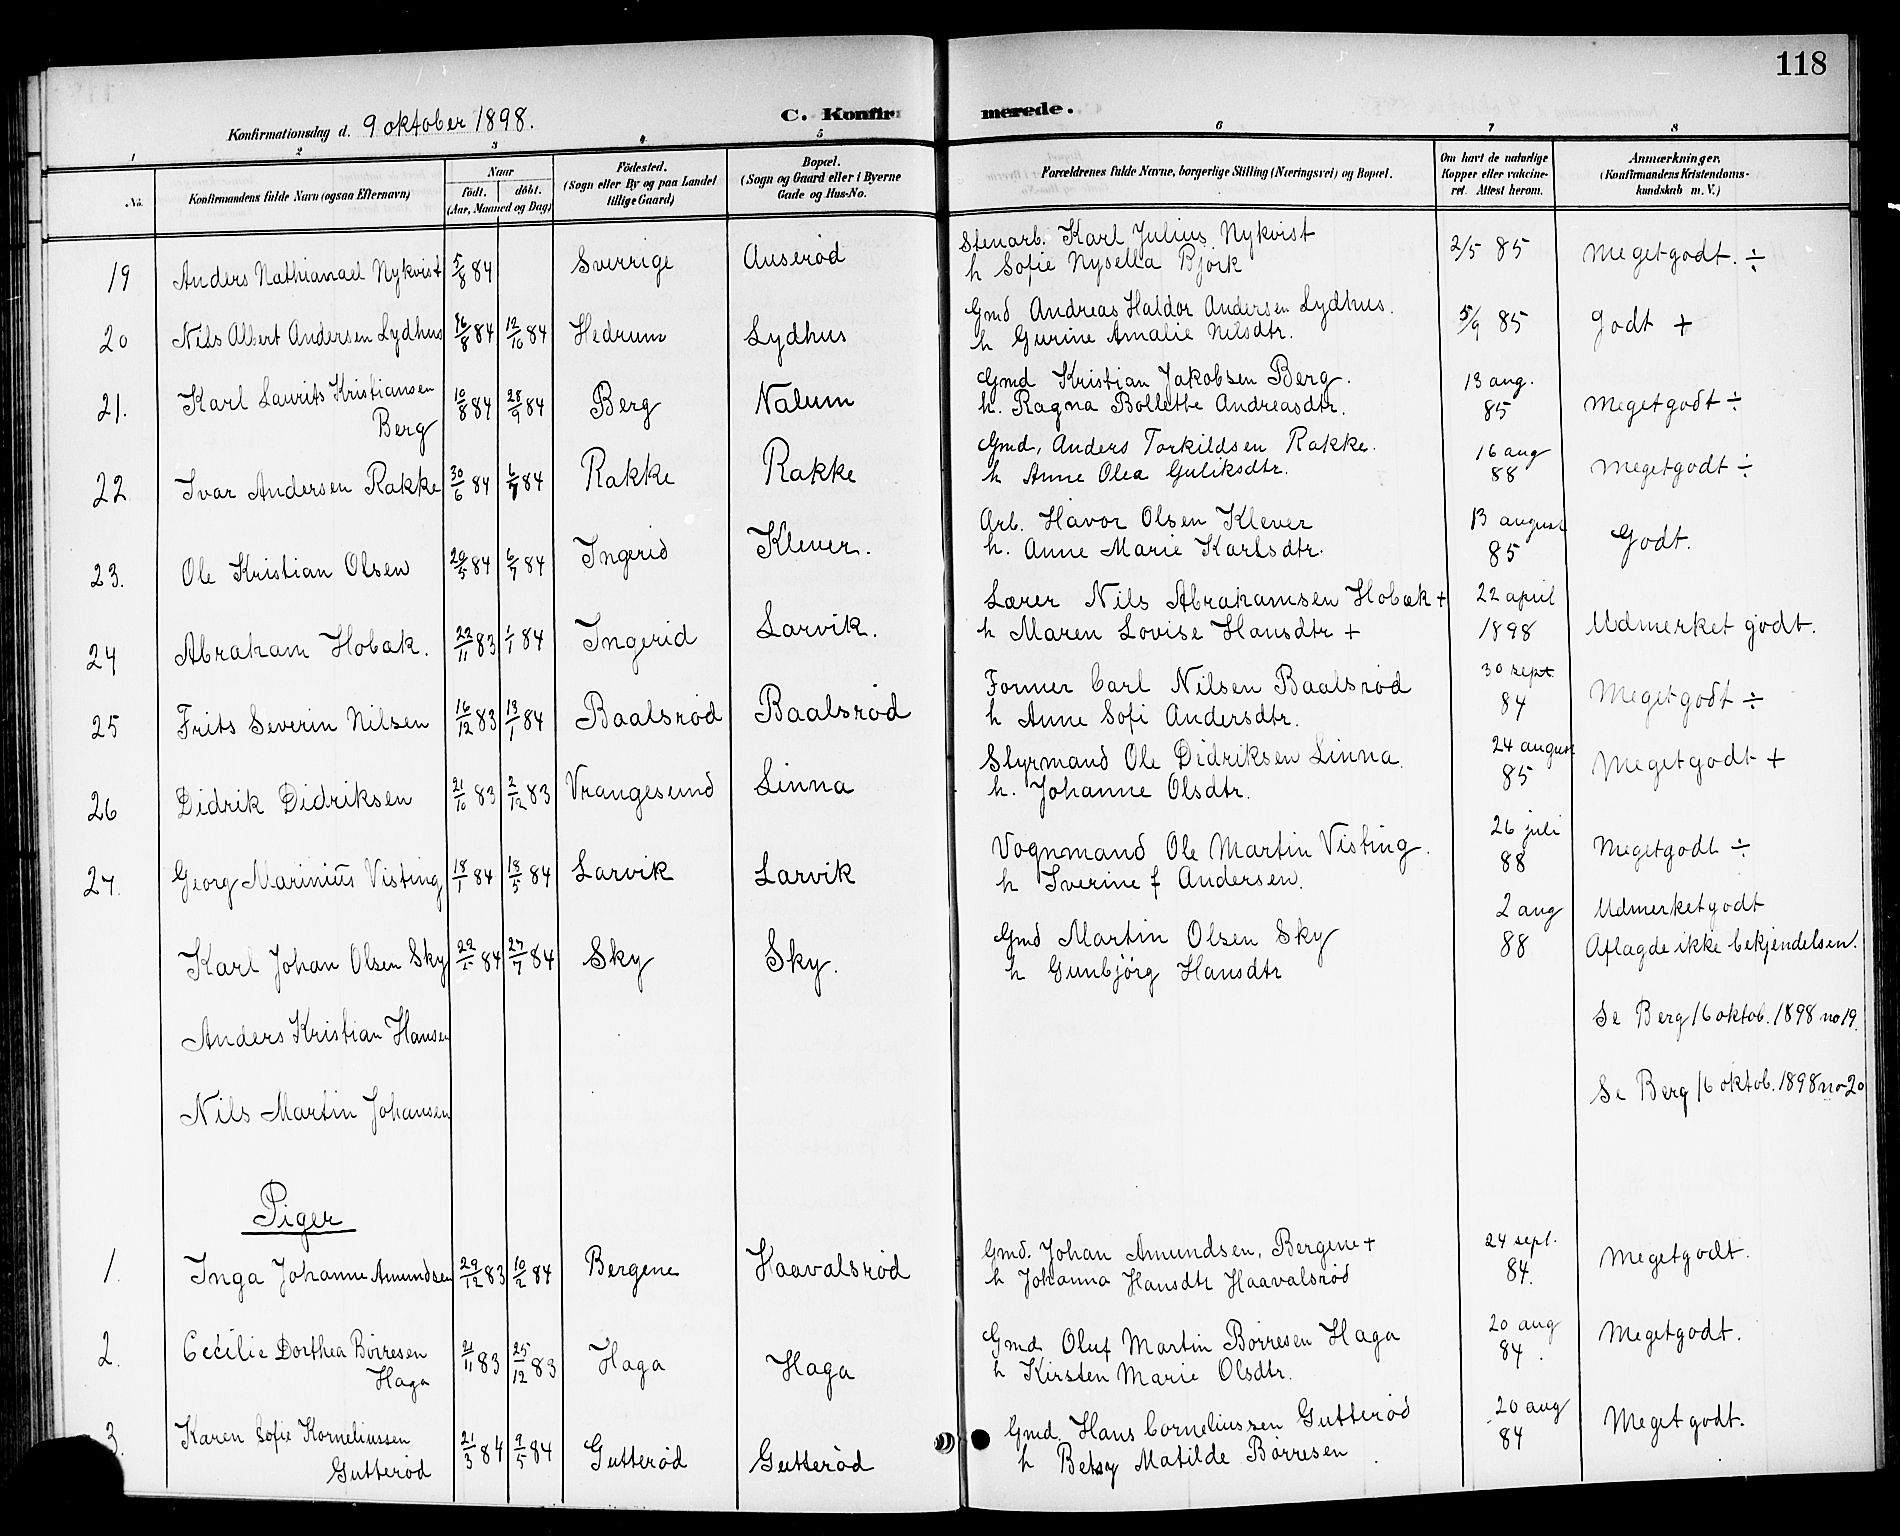 118
Konfirmationsdag d. 9 oktober 1898. C. Konfirmerede.
1 2 3 4 5 6 7 8
No. Konfirmandens fulde Navn (ogsaa Efternavn) Naar født. døbt. (Aar, Maaned og Dag) Fødested. (Sogn eller By og paa Landet tillige Gaard) Bopæl. (Sogn og Gaard eller i Byerne Gade og Hus-No. Forældrenes fulde Navne, borgerlige Stilling (Næringsvei) og Bopæl. Om havt de naturlige Kopper eller vakcineret. Attest herom. Anmærkninger. (Konfirmandens Kristendomskundskab m. V.)
19 Anders Nathianael Nykvist 5/8 84 Sverrige Auserød Stenarb. Karl Julius Nykvist 2/5 85 Megetgodt. ÷
h Sofie Nysella Bjørk
20 Nils Albert Andersen Lydhus 16/8 84 12/10 84 Hedrum Lydhus Gmd Andreas Haldor Andersen Lydhus. 5/9 85 Godt +
h Gurine Amalie Nilsdtr.
21. Karl Laurits Kristiansen 10/8 84 28/9 84 Berg Nalum Gmd Kristian Jakobsen Berg. 13 aug.
Berg h. Ragna Bollette Andreasdtr. 85 Megetgodt ÷
22 Ivar Andersen Rakke 30/6 84 84 Rakke Rakke Gmd, Anders Torkildsen Rakke. 16 aug
h Anne Olea Guliksdtr. 88 Megetgodt ÷
23. Ole Kristian Olsen 29/5 84 6/7 84 Ingerid Klever. Arb. Havor Olsen Klever 13 august
h. Anne Marie Karlsdtr. 85 Godt.
24 Abraham Hobak. 22/11 83 1/1 84 Ingerid Larvik. Lærer Nils Abrahamsen Hobæk + 22 april
h Maren Lovise Hansdtr + 1898 Udmerket godt.
25 Frits Severin Nilsen 16/12 83 13/1 84 Baalsrød Baalsrød Former Carl Nilsen Baalsrød 30 sept.
h Anne Sofi Andersdtr. 84 Megetgodt ÷
26 Didrik Didriksen 21/10 83 2/12 83 Vrangesund Linna Styrmand Ole Didriksen Linna. 24 august
h. Johanne Olsdtr. 85 Megetgodt +
27. Georg Marinius Visting 18/1 84 18/5 84 Larvik Larvik Vognmand Ole Martin Visting. 26 juli
h Iverine f Andersen. 88 Megetgodt ÷
Karl Johan Olsen Sky 84 27/7 84 Sky Sky. Gmd Martin Olsen Sky 2 aug Udmerketgodt
h Gunbjørg Hansdtr 88 Aflagde ikke bekjendelsen.
Anders Kristian Hansen Se Berg 16 oktob. 1898 no 19.
Nils Martin Johansen Se Berg 16 oktob. 1898 no 20
Piger
1. Inga Johanne Amundsen 29/12 83 10/2 84 Bergene Haavalsrød Gmd. Johan Amundsen, Bergene + 24 sept.
h Johanna Hansdtr Haavalsrød 84. Megetgodt.
2. Cecilie Dorthea Børresen 21/11 83 25/12 83 Haga Haga Gmd Oluf Martin Børresen Haga 20 aug
Haga h Kirsten Marie Olsdtr. 84. Megetgodt.
3. Karen Sofie Korneliussen 21/3 84 9/5 84 Gutterød Gutterød Gmd. Hans Corneliussen Gutterød 20 aug
Gutterød h Betsy Matilde Børresen 84 Megetgodt.